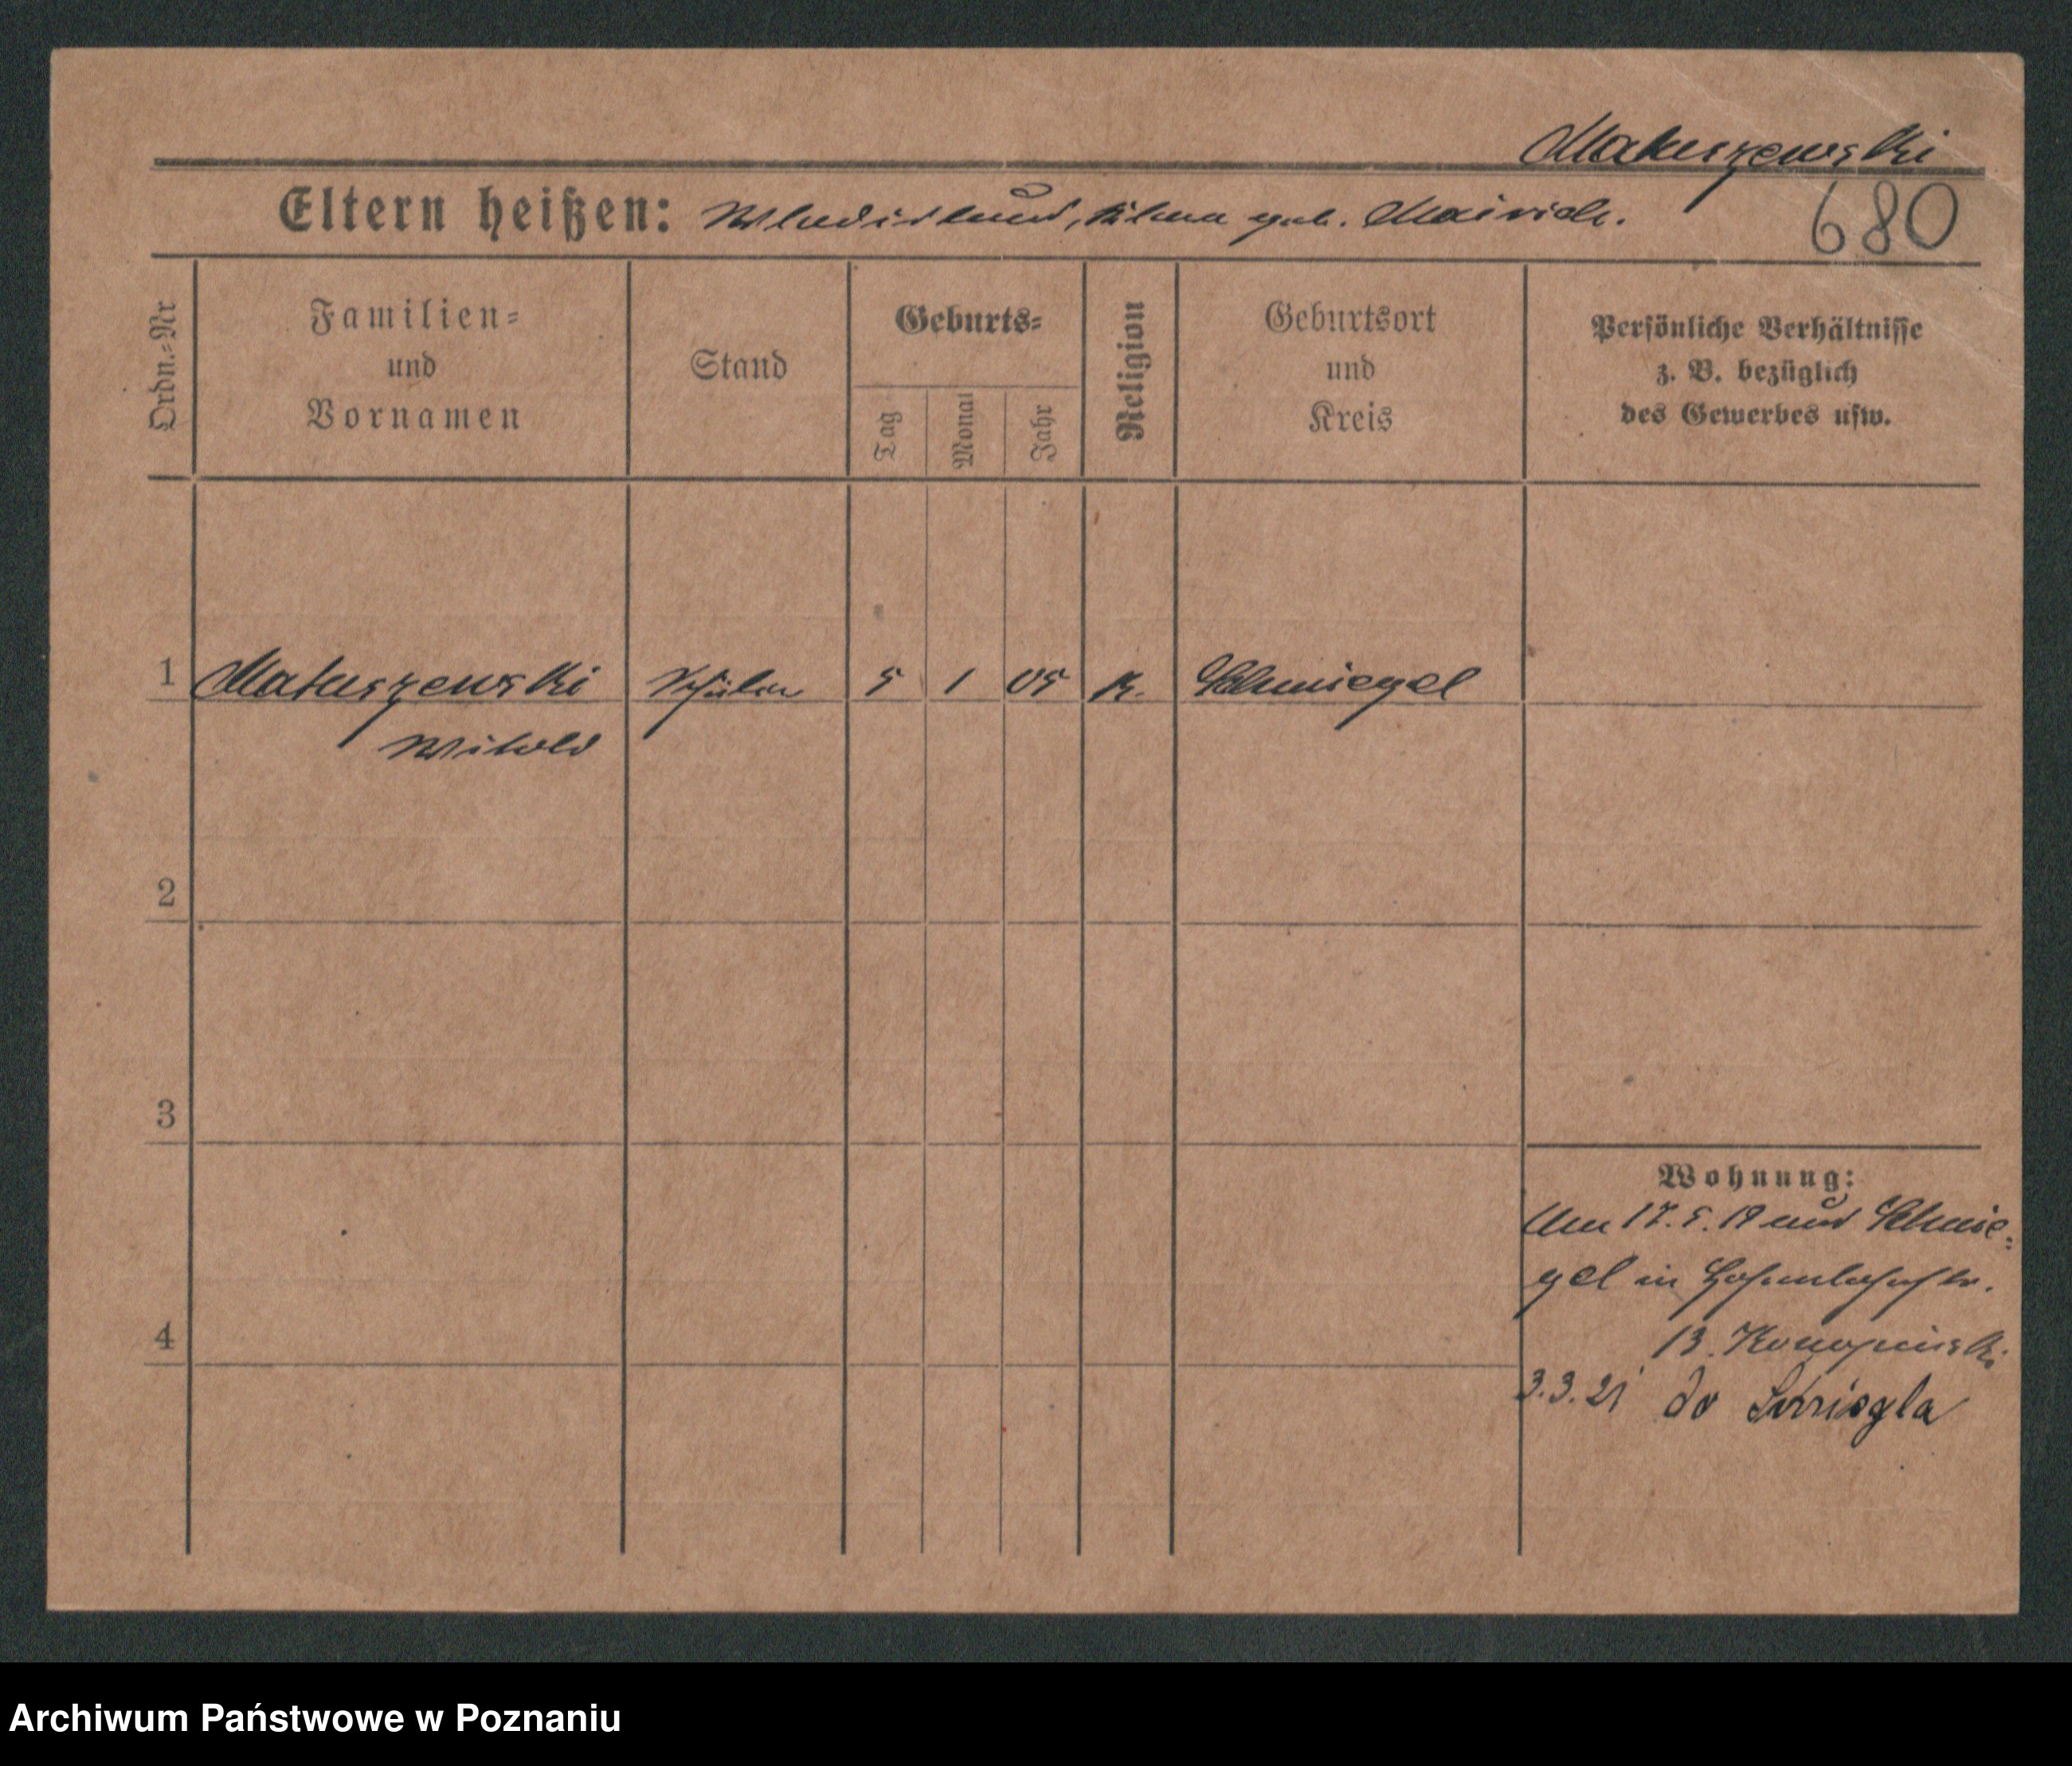 Matuszewski
Eltern heißen: Wladislaus, geb.
680
Ordn.-Nr
Familien-
und
Vornamen
Stand
Geburts-
Tag
Monat
Jahr
Religion
Geburtsort
und
Kreis
Persönliche Verhältnisse
z. B. bezüglich
des Gewerbes usw.
1 Matuszewski Schüler 5 1 05 K. Schmiegel
Witold
2
3
Wohnung:
17.5.19 aus Schmie-
gel in
13.
4
3.3.21 do Śmigla
Archiwum Państwowe w Poznaniu